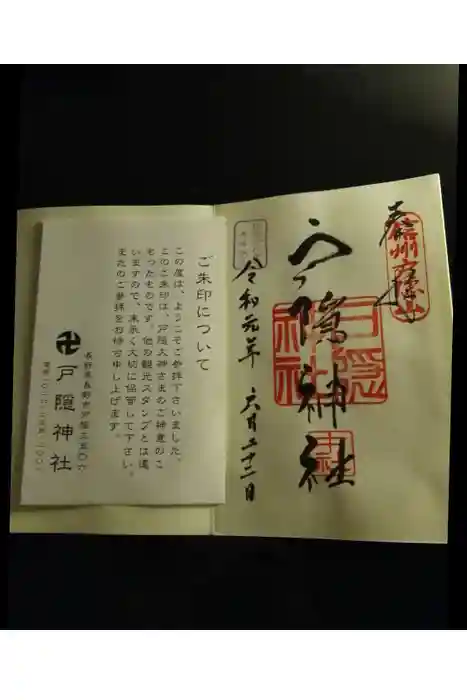 奉拝
信州戸隠山
戸隠神社
戸隠神社
中社
令和元年 六月二十二日
ご朱印について
この度は、ようこそご参拝下さいました。
このご朱印は、戸隠大神さまのご神意のこ
もったものです。他の観光スタンプとは違
いますので、末永く大切に保管して下さい。
またのご参拝をお待ち申し上げます。
長野県長野市戸隠三五〇六
卍戸隠神社